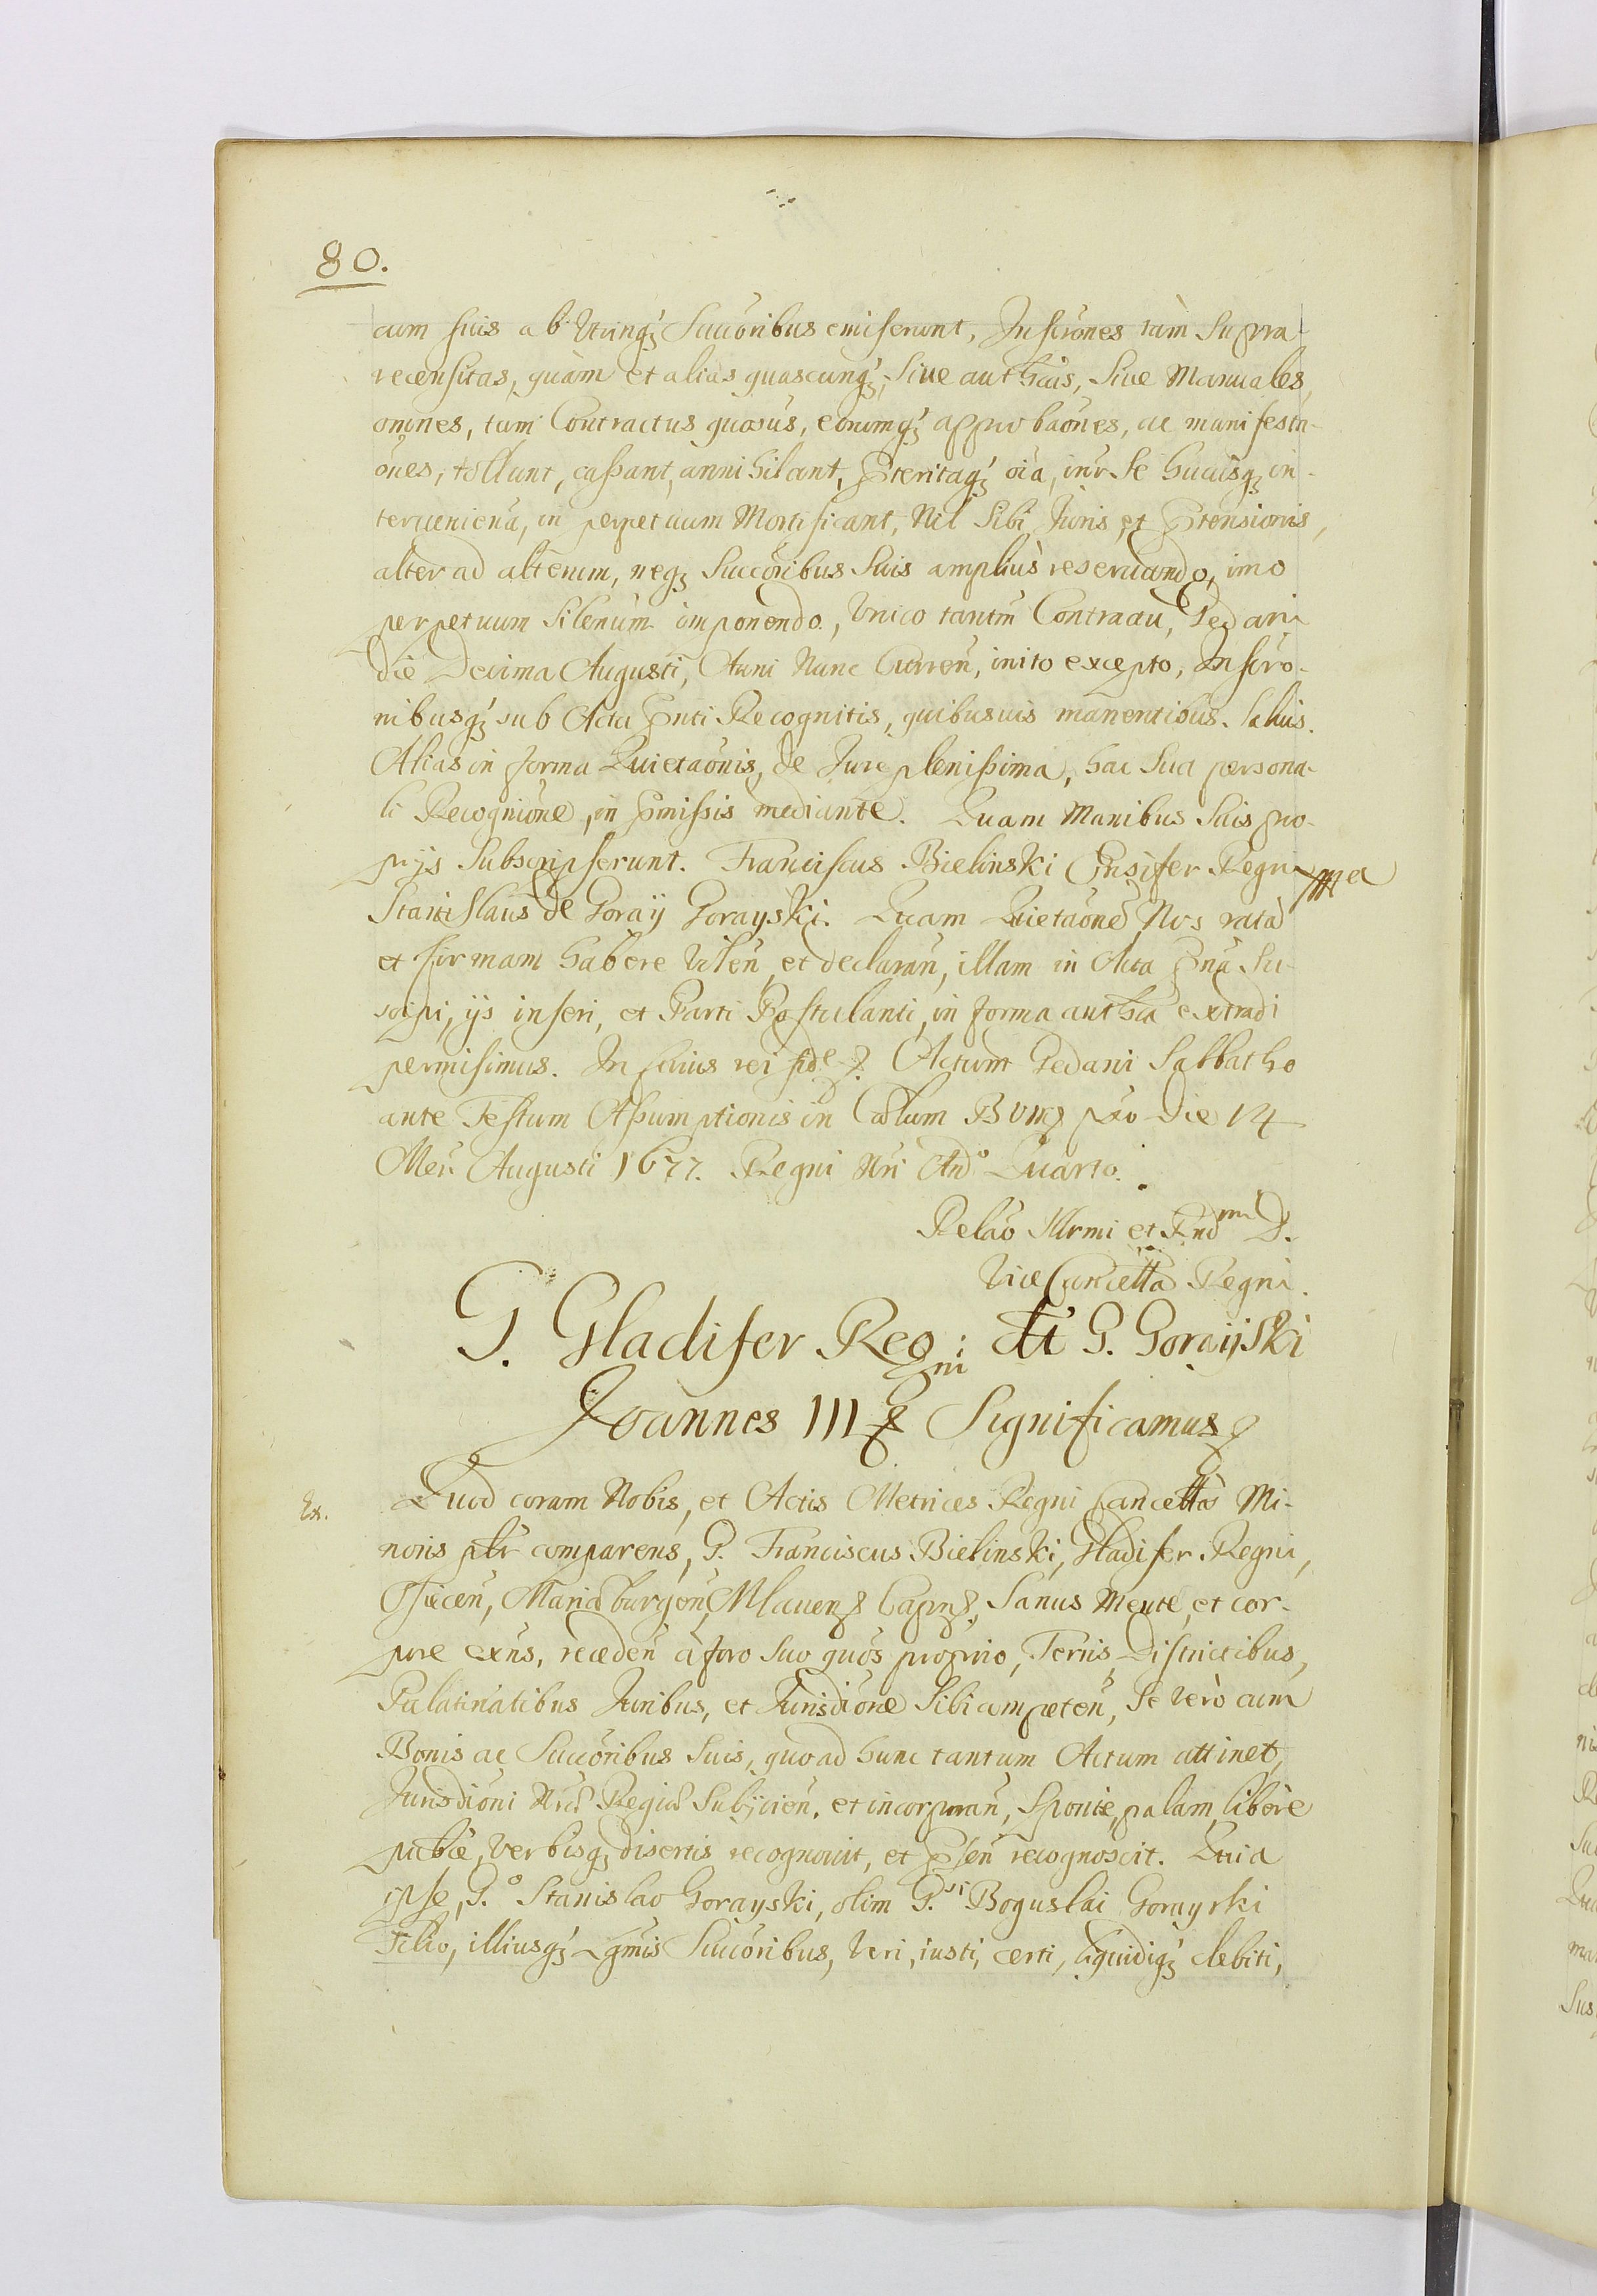 80.
cum suis ab Utrinq; Succoribus emiserunt, Inscrones tàm Supra
recensitas, quàm et alias quascunq; Siue authcas, Siue Manuales,
omnes, tum Contractus quosuis, eorumq; approbaones, ac manifesta-
ones, tollunt, cassant, annihilant, Pteritaq; oia, intr Se hucusq; in-
teruenienа, in perpetuum Mortificant, Nil Sibi Juris, et Ptensionis,
alter ad alterum, neq; Succoribus Suis ampliùs reseruando, imo
perpetuum Silenum imponendo, Unico tantm Contractu, Gedani
die Decima Augusti, Anni Nunc Curren, inito excepto, Inscro-
nibusq; sub Actu Pnti Recognitis, quibusuis manentibus. Saluis.
Alias in forma Quietaonis, de Jure plenissima, hac Sua persona-
li Recognione, in Pmissis mediante. Quam Manibus Suis pro-
prijs Subscripserunt. Franciscus Bielinski Ensifer Regni mpa
Stanislaus de Goraij Gorayski. Quam Quietaone Nos rata
et firmam habere Volen, et declaran, illam in Acta Pna Su-
scipi, ijs inseri, et Parti Postulanti, in forma authca extradi
permisimus. In cuius rei fide &. Actum Gedani Sabbatho
ante Festum Assumptionis in Cœlum BVM pxo die 14
Men. Augusti 1677. Regni Nri Ano Quarto.
Relao Illrmi et Rndmi D.
Vice Cancella Regni.
G. Gladifer Regni: et G. Goraijski
Joannes III & Significamus &
Ex. Quod coram Nobis, et Actis Metrices Regni Cancella Mi-
noris plr comparens, G. Franciscus Bielinski, Gladifer Regni,
Osiecen, Mariæburgen, Mlauen Capns, Sanus Mente, et cor-
pore exns, receden à foro Suo quos proprio, Terris, Districtibus,
Palatinatibus Juribus, et Jurisdione Sibi competen, Se verò cum
Bonis ac Succoribus Suis, quoad hunc tantum Actum attinet,
Jurisdioni Nræ Regiæ Subijcien, et incorporan, Sponte, palam, libere
publce, verbisq; disertis recognouit, et Psen recognoscit. Quia
ipse, G.o Stanislao Gorayski, olim G.si Boguslai Gorayski
Filio, illiusq; Lgmis Succoribus, Veri, iusti, certi, liquidiq; debiti,